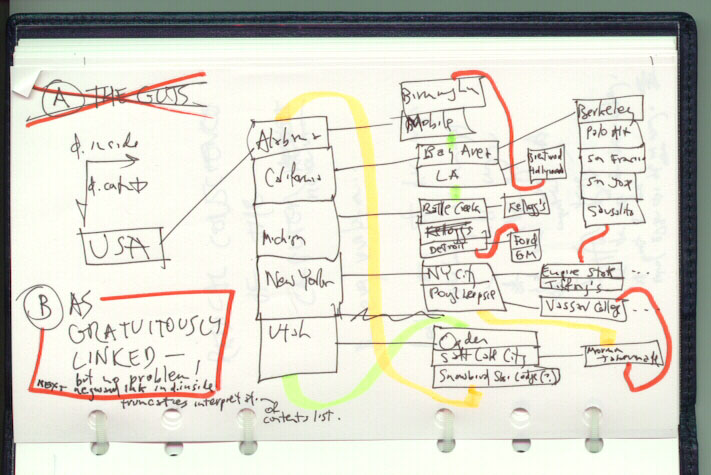 A THE GUSS
d.inside
d.catch
USA
B AS
GRATUITOUSLY
LINKED—
but no problem!
NEXT negword link in d.inside
truncates interpretation
of
contents list.
Alabama
California
Michigan
New York
Utah
Birmingham
Mobile
Bay Area
LA
Battle Creek
Kellogg's
Detroit
NY City
Poughkeepsie
Ogden
Salt Lake City
Snowbird Ski Lodge (?)
Brentwood
Hollywood
Kellogg's
Ford
GM
Berkeley
Palo Alto
San Francisco
San Jose
Sausalito
Empire State ...
Tiffany's
Vassar College ...
Mormon
Tabernacle